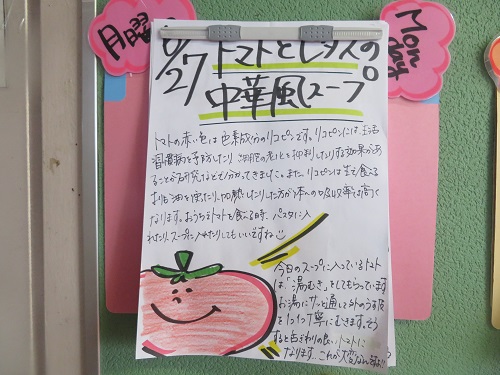 月曜
Mon
day
6/27
トマトとレタスの
中華風スープ
トマトの赤い色は色素成分のリコピンです。リコピンには、生活
習慣病を予防したり、細胞の老化を抑制したりする効果があ
ることが研究などで分かってきました。また、リコピンは生で食べる
よりも油を使ったり、加熱したりした方が体への吸収率は高く
なります。おうちでトマトを食べる時、パスタに入
れたり、スープに入れたりしてもいいですね
今日のスープに入っているトマト
は、「湯むき」をしてもらっています
お湯にサッと通して外のうす皮
を1つ1つ丁寧にむきます。そう
すると舌ざわりの良いトマトに
なります。これが大変なんですよ!!